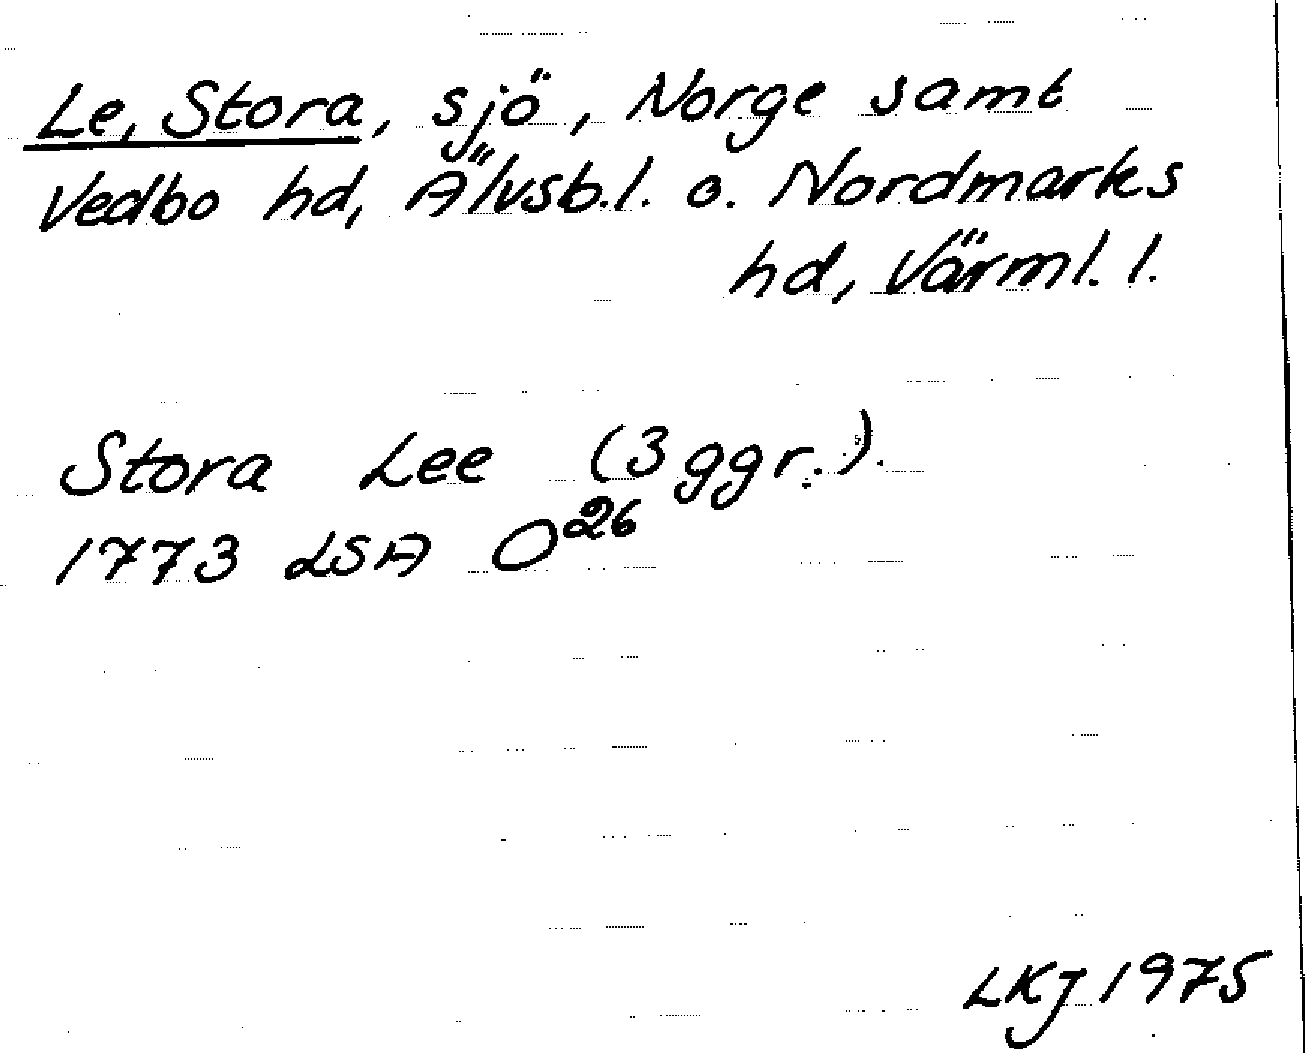 Le, Stora, sjö, Norge samt
Vedbo hd, Älvsb.l. o. Nordmarks
hd, Värml. l.
Stora Lee (3 ggr.).
1773 LSA O²⁶
LKJ 1975